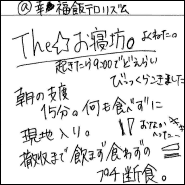 @幸福飯テロリズム
The☆お寝坊。よくねた。
起きたら9:00でどえらい
びっくらこきました
朝の支度
15分。何も食べずに
現地入り。
撤収まで飲まず食わずの
プチ断食。